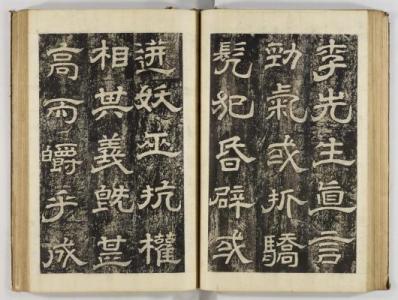 李先生直言
勁氣或折驕
犯昏辟或
迸妖巫抗權
相其義旣甚
高而皭乎成